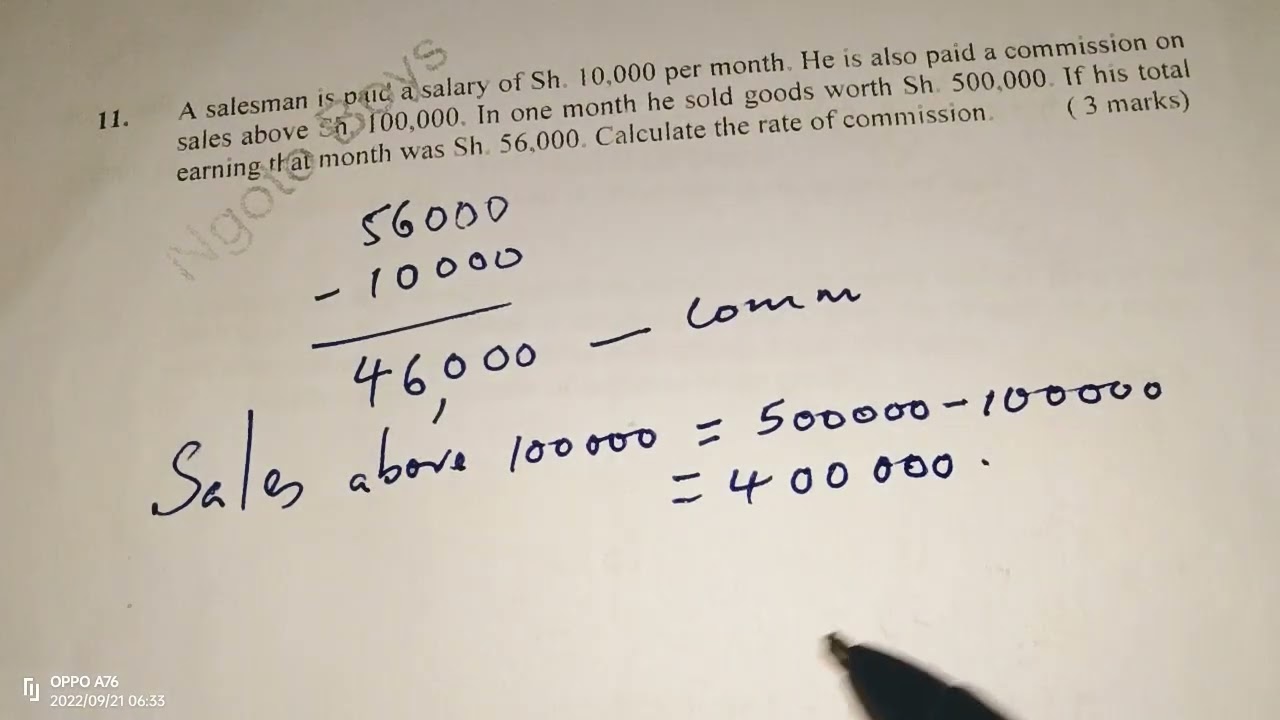 11. A salesman is paid a salary of Sh. 10,000 per month. He is also paid a commission on
sales above Sh. 100,000. In one month he sold goods worth Sh. 500,000. If his total
earning that month was Sh. 56,000. Calculate the rate of commission. ( 3 marks)
56000
- 10000
46,000 — comm
Sales above 100000 = 500000 - 100000
= 400 000.
OPPO A76
2022/09/21 06:33